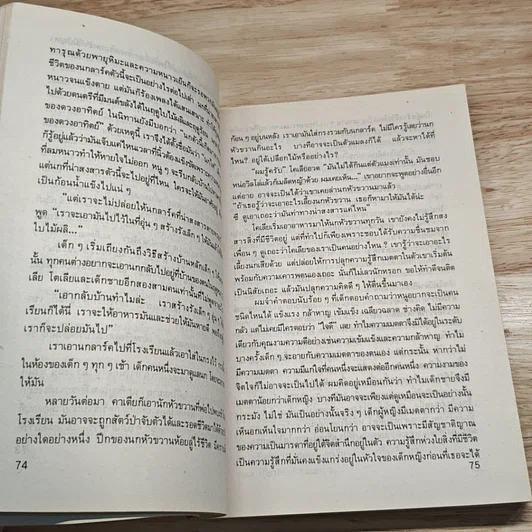 ทารุณด้วยพายุหิมะและความหนาวเย็นก็จะรอด
ชีวิตของนกลาร์คตัวนี้จะเป็นอย่างไรต่อไปเล่า
หนาวจนแข็งตาย แต่มันก็ร้องเพลงได้
ไปด้วยดนตรีที่มีมนต์ขลัง
ของดวงอาทิตย์ ในนิทานยังมีบอกว่า
ของดวงอาทิตย์" ด้วยเหตุนี้ เราจึงได้
ก็รู้อยู่แล้วว่ามันเจ็บ
ที่ลมหนาวทำให้หายใจไม่ออก หนู ๆ จะรีบกลับบ้าน
แต่นกที่น่าสงสารตัวนี้จะไปอยู่ที่ไหน ใครจะให้
เป็นก้อนน้ำแข็งไปแน่ ๆ"
"แต่เราจะไม่ปล่อยให้นกลาร์คที่น่าสงสาร
พูด "เราจะเอามันไปไว้ในที่อุ่น ๆ สร้างรังเล็ก ๆ ให้
ใบไม้ผลิ..."
เด็ก ๆ เริ่มเถียงกันถึงวิธีสร้างบ้านหลักเล็ก ๆ ให้
นั้น ทุกคนต่างอยากจะเอานกกลับไปอยู่ที่บ้านของตน
เลีย โคเลียและเด็กชายอีกสองสามคนเท่านั้นที่ไม่
"เอากลับบ้านทำไมล่ะ เราสร้างรังเล็ก ๆ
เรียนก็ได้ เราจะให้อาหารมันและช่วยให้มันหาย
เราก็จะปล่อยมันไป"
เราเอานกลาร์คไปที่โรงเรียนแล้วเอาใส่ในกรงไว้
ในห้องของเด็ก ๆ ทุก ๆ เช้า เด็กคนหนึ่งจะมาดูแลนก
ให้มัน
หลายวันต่อมา คาเตียก็เอานักหัวขวานที่พ่อ
โรงเรียน มันอาจจะถูกสัตว์ป่าจับตัวได้และรอดชีวิตมาได้
อย่างใดอย่างหนึ่ง ปีกของนกหัวขวานห้อยลู่ไร้ชีวิต
74
ก้อน ๆ อยู่บนหลัง เราเอามันใส่กรงรวมกับนกลาร์ค ไม่มีใครรู้เลยว่านก
หัวขวานกินอะไร บางทีอาจจะเป็นตัวแมลงก็ได้ แล้วจะหาได้ที่
ไหน? อยู่ใต้เปลือกไม้หรืออย่างไร?
"ผมรู้ครับ" โคเลียอวด "มันไม่ได้กินแต่ตัวแมงเท่านั้น มันชอบ
หน่อวิลโล่แล้วก็เมล็ดหญ้าด้วย ผมเคยเห็น..." เขาอยากจะพูดอย่างอื่นอีก
แต่อาย อาจจะเป็นได้ว่าเขาเคยล่านกหัวขวานมาแล้ว
"ถ้าเธอรู้ว่าจะเอาอะไรเลี้ยงนกหัวขวาน เธอก็หามาให้มันน่ะ
ซี ดูเอาเถอะว่ามันทำทางน่าสงสารแค่ไหน"
โคเลียเริ่มเอาอาหารมาให้นกหัวขวานทุกวัน เขายังคงไม่รู้สึกสง
สารสิ่งที่มีชีวิตอยู่ แต่ที่ทำไปก็เพียงเพราะชอบได้รับความชื่นชมจาก
เพื่อน ๆ ดูเถอะว่าโคเลียของเราเป็นคนอย่างไรไหม ? เขารู้ว่าจะเอาอะไร
เลี้ยงนกเสียด้วย แต่ปล่อยให้การปลูกความรู้สึกเมตตาในตัวเขาเริ่มต้น
พร้อมกับความเคารพตนเองเถอะ นั่นก็ไม่เลวนักหรอก ขอให้ทำดีจนติด
เป็นนิสัยเถอะ แล้วมันปลุกความคิดดี ๆ ให้ตื่นขึ้นมาเอง
ผมจำคำตอบนับร้อย ๆ ที่เด็กตอบคำถามว่าหนูอยากจะเป็นคน
ชนิดไหนได้ แข็งแรง กล้าหาญ เข้มแข็ง เฉลียวฉลาด ช่างคิด ไม่มีความ
กลัว แต่ไม่เคยมีใครตอบว่า "ใจดี" เลย ทำไมความเมตตาจึงมิได้อยู่ในระดับ
เดียวกับคุณงามความดีอย่างเช่นความเข้มแข็งและความกล้าหาญ ทำไม
บางครั้งเด็ก ๆ จะอายกับความเมตตาของตนเอง แต่กระนั้น หากว่าไม่
มีความเมตตา ความมีแก่ใจที่คนหนึ่งจะแสดงต่ออีกคนหนึ่ง ความงามของ
จิตใจก็ไม่อาจจะเป็นไปได้ ผมคิดอยู่เหมือนกันว่า ทำไมเด็กชายจึงมี
เมตตาน้อยกว่าเด็กหญิง บางทีมันอาจจะเพียงแต่ดูเหมือนว่าจะเป็นอย่างนั้น
กระมัง ไม่ใช่ มันเป็นอย่างนั้นจริง ๆ เด็กผู้หญิงมีเมตตากว่า มีความ
คำนึงถึงผู้อื่นมากกว่า อ่อนโยนกว่า อาจจะเป็นเพราะมีสัญชาติญาณ
ของความเป็นมารดาที่อยู่ใต้จิตสำนึกอยู่ในตัว ความรู้สึกห่วงใยสิ่งที่มีชีวิต
เป็นความรู้สึกที่มั่นคงแข็งแกร่งอยู่ในหัวใจของเด็กหญิงก่อนที่เธอจะได้
75